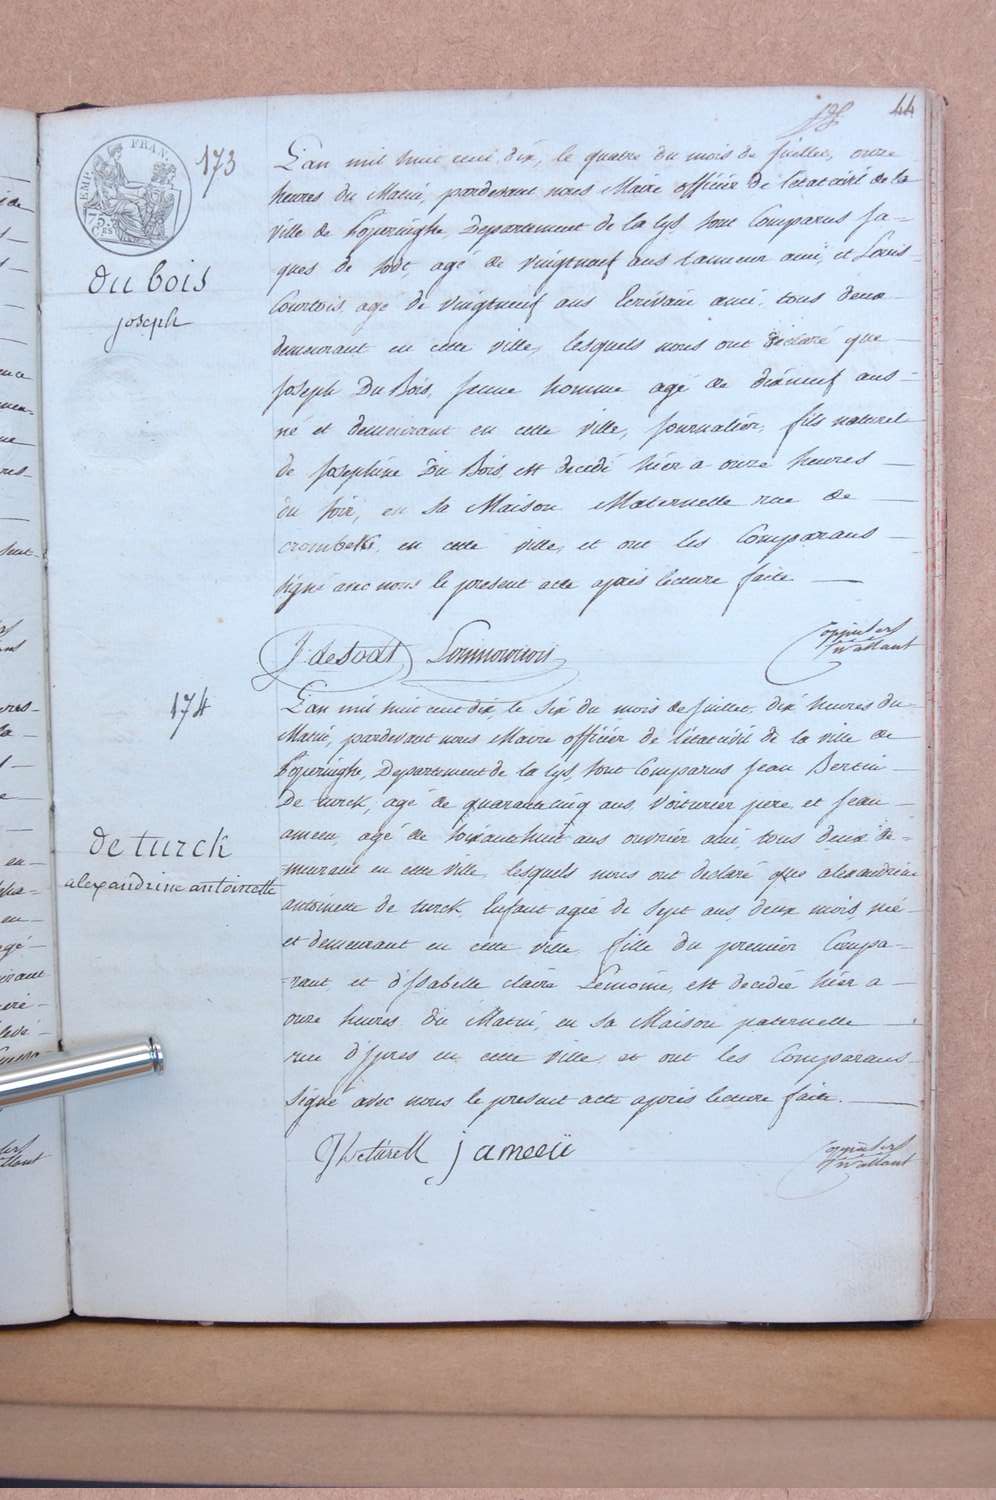 44
EMP. FRAN.
75.
CES
173
L'an mil huit cent dix, le quatre du mois de juillet, onze
heures du Matin, pardevant nous Maire officier de l'état civil de la
ville de Poperinghe, Departement de la Lys, sont Comparus Ja-
ques de Sodt, agé de vingtneuf ans tanneur ami, et Louis
Courtois, agé de vingtneuf ans Ecrivain ami, tous deux
demeurant en cette ville, lesquels nous ont déclaré que
Joseph Du Bois, jeune homme agé de dixneuf ans
né et demeurant en cette ville, journalier, fils naturel
de Josephine Du Bois, est decedé hier a onze heures
du soir, en sa Maison Maternelle rue de
crombeke, en cette ville, et ont les Comparans
signé avec nous le present acte après lecture faite
du bois
joseph
J: de Sodt Louis Courtois
174
L'an mil huit cent dix, le six du mois de juillet, dix heures du
Matin, pardevant nous Maire officier de l'état civil de la ville de
Poperinghe, Departement de la Lys, sont Comparus Jean Bertin
De turck, agé de quarantecinq ans, Voiturier pere, et Jean
ameeu, agé de soixantehuit ans ouvrier ami, tous deux de-
-meurant en cette ville, lesquels nous ont declaré que alexandrine
antoinette de turck, Enfant agée de sept ans, deux mois, née
et demeurant en cette ville, fille du premier Compa-
-rant, et d'Isabelle claire Lemoine, est decedée hier a
onze heures du Matin, en sa Maison paternelle
rue d'Ipres en cette ville, et ont les Comparans
signé avec nous le present acte après lecture faite.
de turck
alexandrine antoinette
J B de turck j ameeü